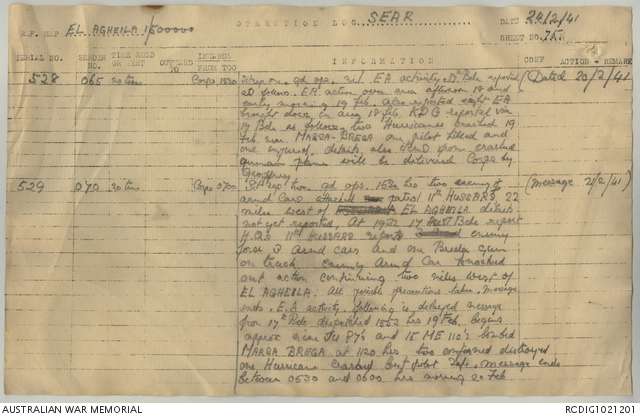 OPERATION LOG SEAR DATE 24/2/41
REF. MAP EL AGHEILA 1/500000 SHEET NO. 75.
SERIAL NO. SENDER NO. TIME RECD OR SENT INFORMATION CONF ACTION - REMARKS
FROM TOO
528 065 Corps 1830 Sitrep gd ops. nil. EA activity. Bde reported (Dated 20/2/41)
as follows. EA action over area afternoon 18 and
early morning 19 Feb. also reported eight EA
brought down in area 18 Feb. KDG reported via
17 Bde as follows, two Hurricanes crashed 19
Feb near MARSA-BREGA one pilot killed and
one injured, details also from crashed
german plane will be delivered Corps by
529 070 Corps 0700 Sitrep gd ops. 1530 hrs two enemy (Message 21/2/41)
armd cars patrol 11th HUSSARS 22
miles west of EL AGHEILA details
not yet reported, At 1922 17 Bde report
H.Q. 11th HUSSARS reports enemy
force 3 Armd cars and one Breda gun
on truck enemy Armd Car knocked
out action continuing two miles west of
EL AGHEILA. All possible precautions taken. message
ends. E.A activity. following is delayed message
from 17th Bde despatched 1552 hrs 19 Feb. begins
approx nine JU 87's and 15 ME 110's bombed
MARSA BREGA at 1120 hrs two confirmed destroyed
one Hurricane crashed but pilot safe. message ends
between 0530 and 0600 hrs morning 20 Feb
AUSTRALIAN WAR MEMORIAL RCDIG1021201